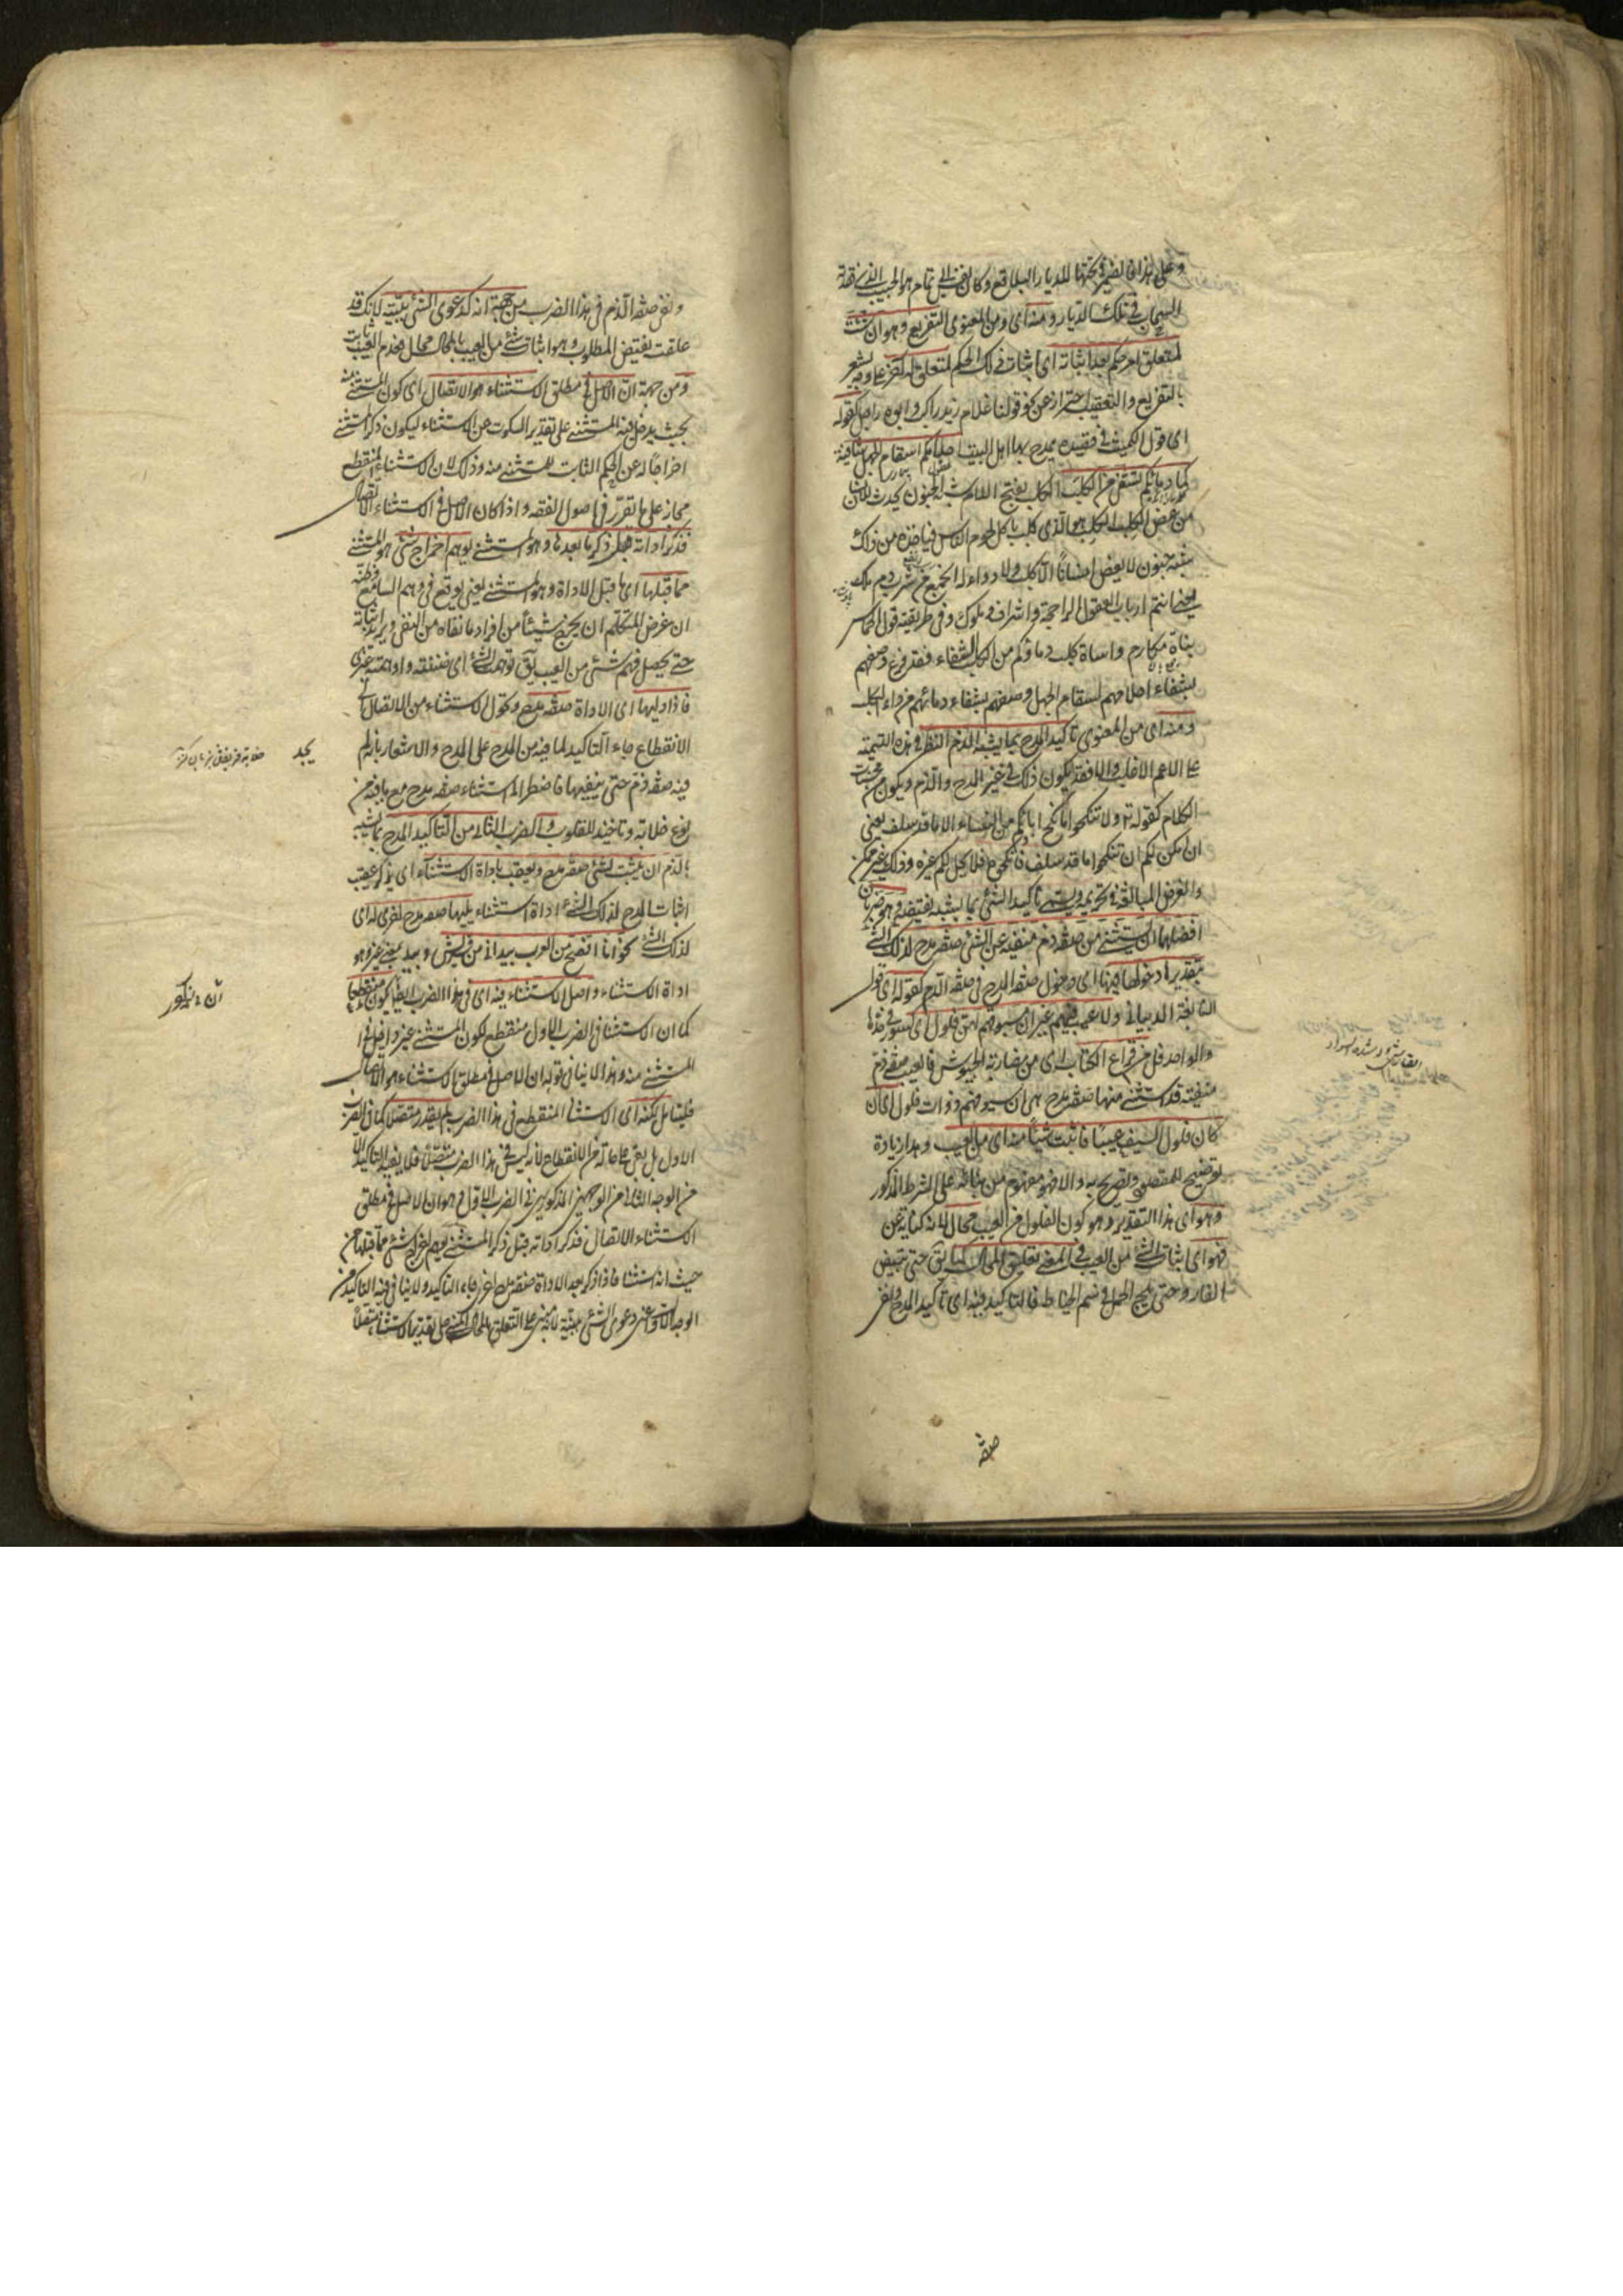 وعلى هذا فالضمير في تحتها للديار البلاقع وكان لفظ الى تمام هو الحبيب الذى فقده
السحاب في تلك الديار ومنه اى ومن المعنوى التفريع وهو ان يثبت
لمتعلق امر حكم بعد اثباته اى اثبات ذلك الحكم لمتعلق له اخر على وجه يشعر
بالتفريع والتعقيب احترازا عن نحو قولنا غلام زيد راكب وابوه راجل كقوله
اى قول الكميت في قصيدة يمدح بها اهل البيت احلامكم لسقام الجهل شافية
كما دماؤكم تشفى من الكلب الكلب بفتح اللام شبه جنون يحدث للانسان
من عض الكلب الكلب هو الذى كلب باكل لحوم الناس فياخذه من ذلك
شبه جنون لا يعض انسانا الا كلب ولا دواء له انجع من شرب دم ملك
يعنى انتم ارباب العقول الراجحة واشراف وملوك وفى طريقته قول الحماسى
بناة مكارم واساة كلم دماؤكم من الكلب الشفاء فقد فرع وصفهم
بشفاء احلامهم لسقام الجهل وصفهم بشفاء دمائهم من داء الكلب
ومنه اى من المعنوى تاكيد المدح بما يشبه الذم النظر في هذه التسمية
على الاعم الاغلب والا فقد يكون ذلك في غير المدح والذم ويكون من محسنات
الكلام كقوله تع ولا تنكحوا ما نكح آباؤكم من النساء الا ما قد سلف يعنى
ان امكن لكم ان تنكحوا ما قد سلف فانكحوه فلا يحل لكم غيره وذلك غير ممكن
والغرض المبالغة في تحريمه ويسمى تاكيد الشئ بما يشبه نقيضه وهو ضربان
افضلهما ان يستثنى من صفة ذم منفية عن الشئ صفة مدح لذلك الشئ
بتقدير دخولها فيها اى دخول صفة المدح في صفة الذم كقوله اى قول
النابغة الذبيانى ولا عيب فيهم غير ان سيوفهم بهن فلول اى كسور في حدها
والواحد فل من قراع الكتائب اى من مضاربة الجيوش فالعيب صفة ذم
منفية قد استثنى منها صفة مدح هى ان سيوفهم ذوات فلول اى ان
كان فلول السيف عيبا فاثبت شيئا منه اى من العيب وهذا زيادة
توضيح للمقصود وتصريح به والا فهو مفهوم من بنائه على الشرط المذكور
وهو اى هذا التقدير وهو كون الفلول من العيب محال لانه كناية عن
فهو اى اثبات الشئ من العيب في المعنى تعليق بالمحال كما يقال حتى يبيض
القار وحتى يلج الجمل في سم الخياط فالتاكيد فيه اى تاكيد المدح ونفى
صفة
ونفى صفة الذم في هذا الضرب من جهة انه كدعوى الشئ ببينة لانك قد
علقت نقيض المطلوب وهو اثبات شئ من العيب بالمحال محال فعدم العيب ثابت
ومن جهة ان الاصل في مطلق الاستثناء هو الاتصال اى كون المستثنى منه
بحيث يدخل فيه المستثنى على تقدير السكوت عن الاستثناء ليكون ذكر المستثنى
اخراجا له عن الحكم الثابت للمستثنى منه وذلك لان الاستثناء المنقطع
مجاز على ما تقرر في اصول الفقه واذا كان الاصل في الاستثناء الاتصال
فذكر اداته قبل ذكر ما بعدها وهو المستثنى يوهم اخراج شئ هو المستثنى
مما قبلها اى ما قبل الاداة وهو المستثنى يعنى يوقع في وهم السامع وظنه
ان غرض المتكلم ان يخرج شيئا من افراد ما نفاه من النفى ويريد اثباته
حتى يحصل فيهم شئ من العيب يق توهمت الشئ اى ظننته واوهمته غيرى
فاذا وليها اى الاداة صفة مدح وتحول الاستثناء من الاتصال الى
الانقطاع جاء التاكيد لما فيه من المدح على المدح والاشعار بانه لم يجد
فيه صفة ذم حتى ينفيها فاضطر الى استثناء صفة مدح مع ما فيه من
نوع خلابة وتاخيذ للقلوب والضرب الثانى من التاكيد المدح بما يشبه
الذم ان يثبت لشئ صفة مدح ويعقب باداة الاستثناء اى يذكر عقيب
اثبات المدح لذلك الشئ اداة استثناء يليها صفة مدح اخرى له اى
لذلك الشئ نحو انا افصح من العرب بيد انى من قريش وبيد بمعنى غير وهو
اداة الاستثناء واصل الاستثناء فيه اى في هذا الضرب ايضا ان يكون منقطعا
كما ان الاستثناء في الضرب الاول منقطع لكون المستثنى غير داخل في
المستثنى منه وهذا لا ينافى قوله ان الاصل في مطلق الاستثناء هو الاتصال
فليتامل لكنه اى الاستثناء المنقطع في هذا الضرب لم يقدر متصلا كما في الضرب
الاول بل بقى على حاله من الانقطاع لانه ليس في هذا الضرب متصلا فلا يفيد التاكيد الا
من الوجه الثانى من الوجهين المذكورين في الضرب الاول وهو ان الاصل في مطلق
الاستثناء الاتصال فذكر اداته قبل ذكر المستثنى يوهم اخراج شئ مما قبلها من
حيث انه استثناء فاذا ذكر بعد الاداة صفة مدح اخرى جاء التاكيد ولا يتاتى فيه التاكيد من
الوجه الاول اعنى دعوى الشئ ببينة لانه مبنى على التعليق بالمحال المبنى على تقدير الاستثناء متصلا